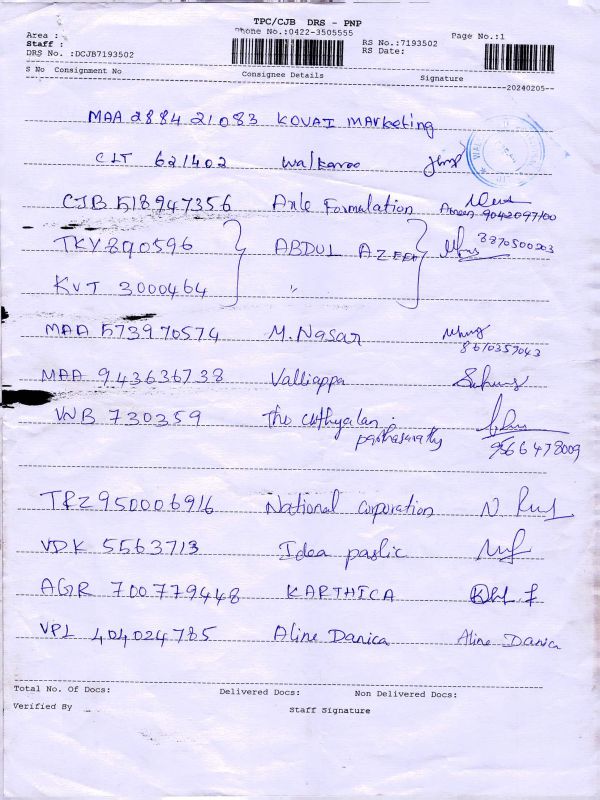 TPC/CJB DRS - PNP
Area : Phone No.:0422-3505555 Page No.:1
Staff : RS No.:7193502
DRS No. :DCJB7193502 RS Date:
S No Consignment No Consignee Details Signature
20240205
MAA 288421083 KOVAI Marketing
CLT 621402 Walkaroo
CJB 518947356 Axle Formulation
9042097100
TKY890596 ABDUL AZEEZ 8870500203
KVT 3000464 "
MAA 573970574 M.Nasar
8610357043
MAA 943636738 Valliappa
WB 730359
parthasarathy 9566478009
TRZ950006916 National corporation
VDK 5563713 Idea paslic
AGR 700779448 KARTHICA
VPL 404024785 Aline Danica Aline Danica
Total No. Of Docs: Delivered Docs: Non Delivered Docs:
Verified By Staff Signature